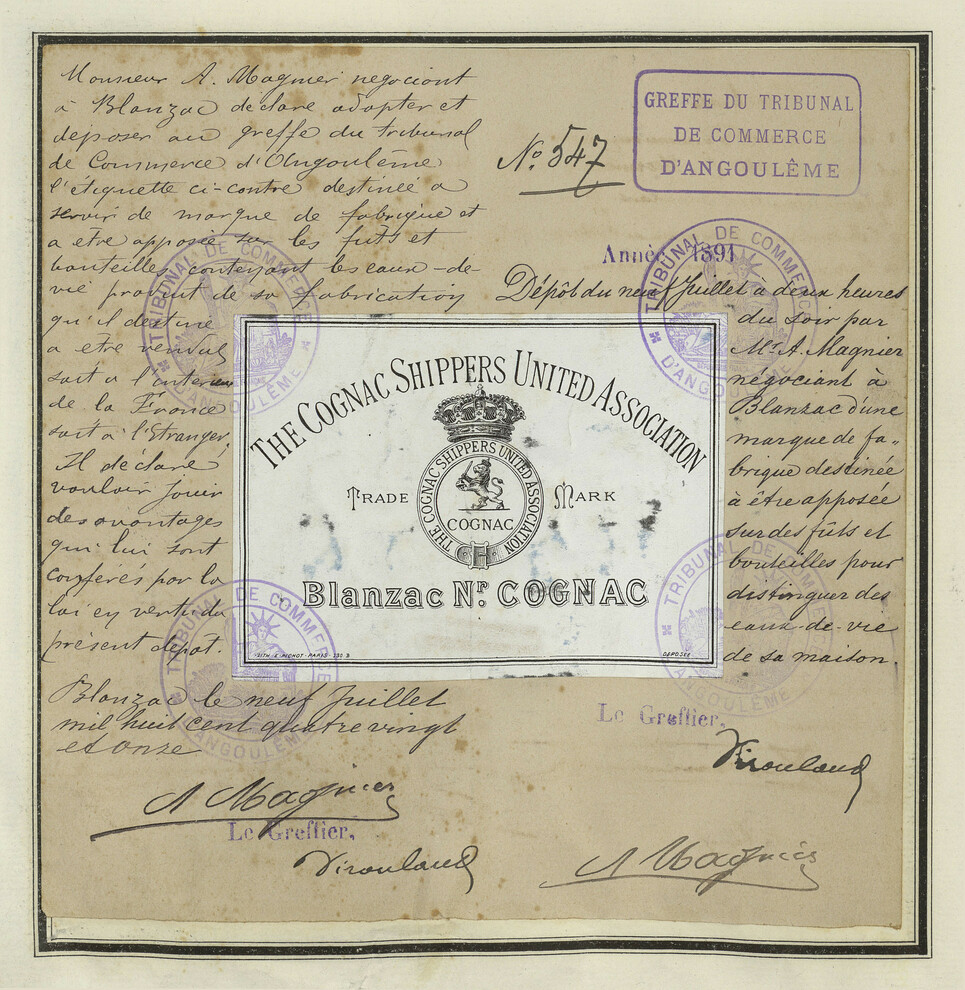 Monsieur A. Magnier négociant
à Blanzac declare adopter et
deposer au greffe du tribunal
de Commerce d'Angoulême
l'étiquette ci-contre destinée a
servir de marque de fabrique et
a etre apposée sur les futs et
bouteilles contenant les eaux-de-
vie provient de sa fabrication
qu'il destine
a etre vendus
soit a l'interieur
de la France
soit a l'Etranger,
Il declare
vouloir jouir
des avantages
qui lui sont
conférés par la
loi en vertu du
présent depot.
Blanzac le neuf Juillet
mil huit cent quatre vingt
et onze
A Magnier
Le Greffier,
GREFFE DU TRIBUNAL
DE COMMERCE
D'ANGOULÊME
No 547
Année 1891
Dépôt du neuf Juillet à deux heures
du soir par
Mr A. Magnier
négociant à
Blanzac d'une
marque de fa-
brique destinée
à être apposée
sur des fûts et
bouteilles pour
distinguer des
eaux-de-vie
de sa maison.
Le Greffier,
A Magnier
THE COGNAC SHIPPERS UNITED ASSOCIATION
TRADE MARK
THE COGNAC SHIPPERS UNITED ASSOCIATION
COGNAC
Blanzac Nr. COGNAC
DÉPOSÉE
TRIBUNAL DE COMMERCE
D'ANGOULÊME
TRIBUNAL DE COMMERCE
D'ANGOULÊME
TRIBUNAL DE COMMERCE
D'ANGOULÊME
TRIBUNAL DE COMMERCE
D'ANGOULÊME